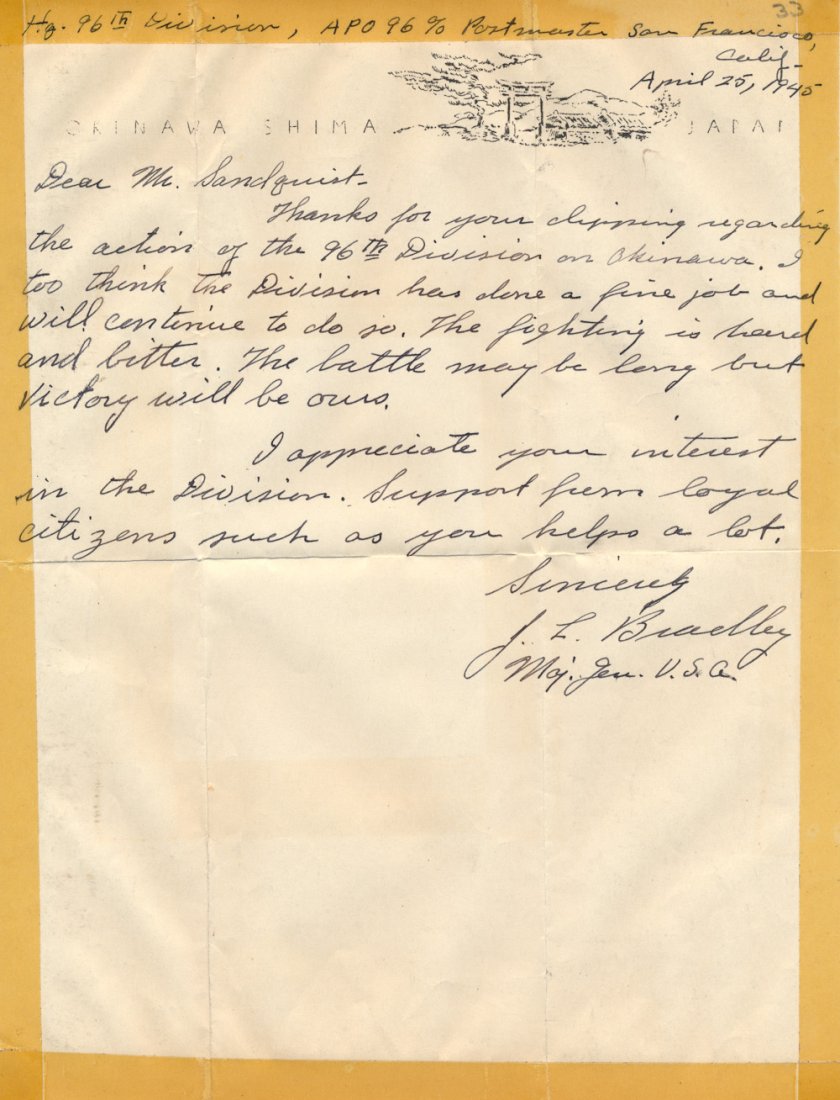 33
Hq. 96th Division, APO 96 % Postmaster San Francisco,
Calif-
April 25, 1945
OKINAWA SHIMA JAPAN
Dear Mr. Sandquist-
Thanks for your clipping regarding
the action of the 96th Division on Okinawa. I
too think the Division has done a fine job and
will continue to do so. The fighting is hard
and bitter. The battle may be long but
victory will be ours.
I appreciate your interest
in the Division. Support from loyal
citizens such as you helps a lot.
Sincerely
J. L. Bradley
Maj. Gen. U.S.A.